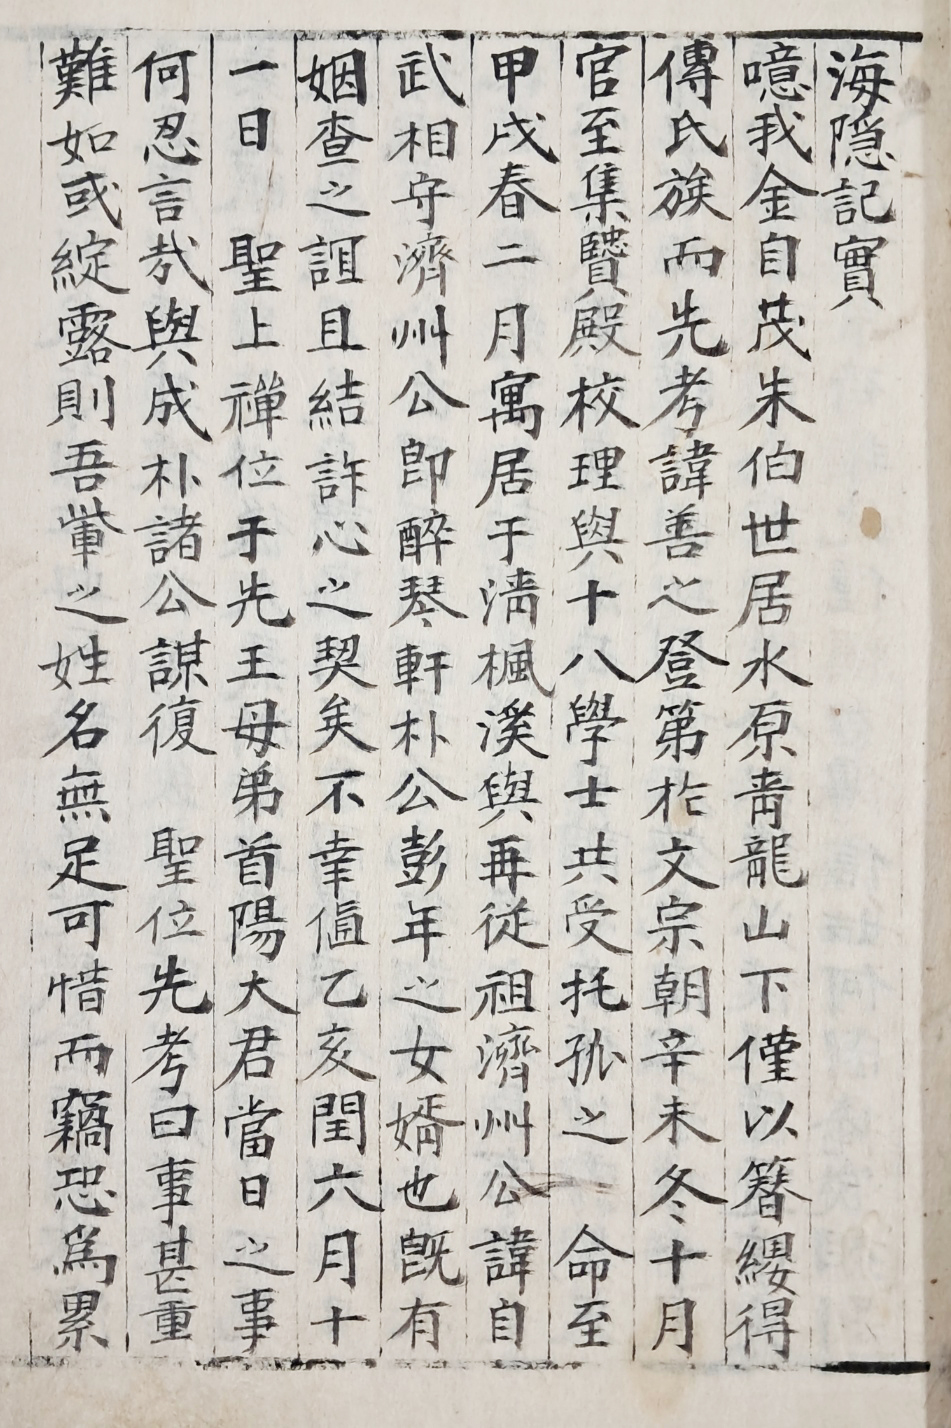 海隠記實
噫我金自茂朱伯世居水原靑龍山下僅以簪纓得
傳氏族而先考諱善之登第於文宗朝辛未冬十月
官至集賢殿校理與十八學士共受托孤之　命至
甲戌春二月寓居于淸楓溪與再從祖濟州公諱自
武相守濟州公卽醉琴軒朴公彭年之女婿也旣有
姻查之誼且結許心之契矣不幸値乙亥閏六月十
一日　聖上禪位于先王母弟首陽大君當日之事
何忍言哉與成朴諸公謀復　聖位先考曰事甚重
難如或綻露則吾輩之姓名無足可惜而竊恐爲累